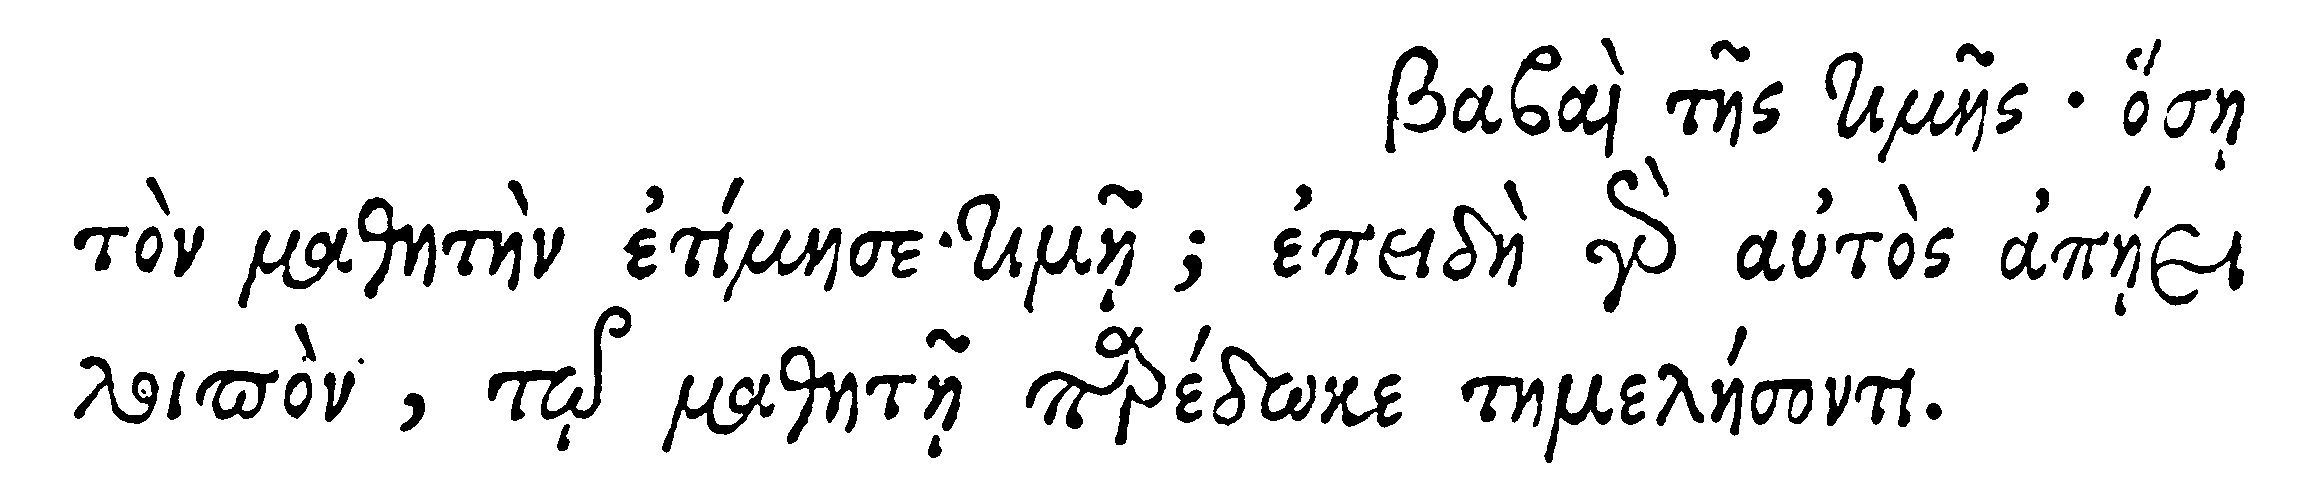 Βαβαὶ τῆς τιμῆς · ὅση
τὸν μαθητὴν ἐτίμησε · τιμῇ ; ἐπειδὴ γὰρ αὐτὸς ἀπῄει
λοιπὸν , τῷ μαθητῇ παρέδωκε τημελήσοντι .